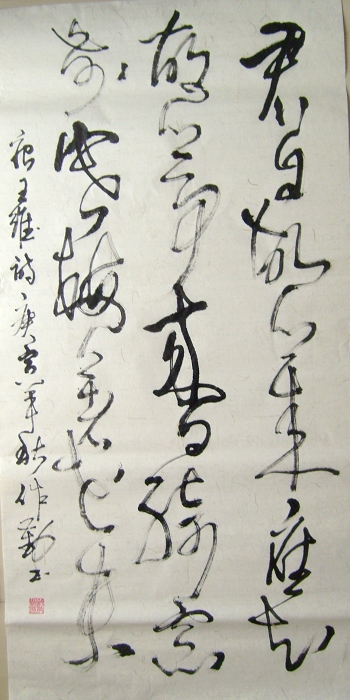 君自故鄉來應知
故鄉事來日綺窗
前寒梅著花未
唐王維詩庚寅年秋作